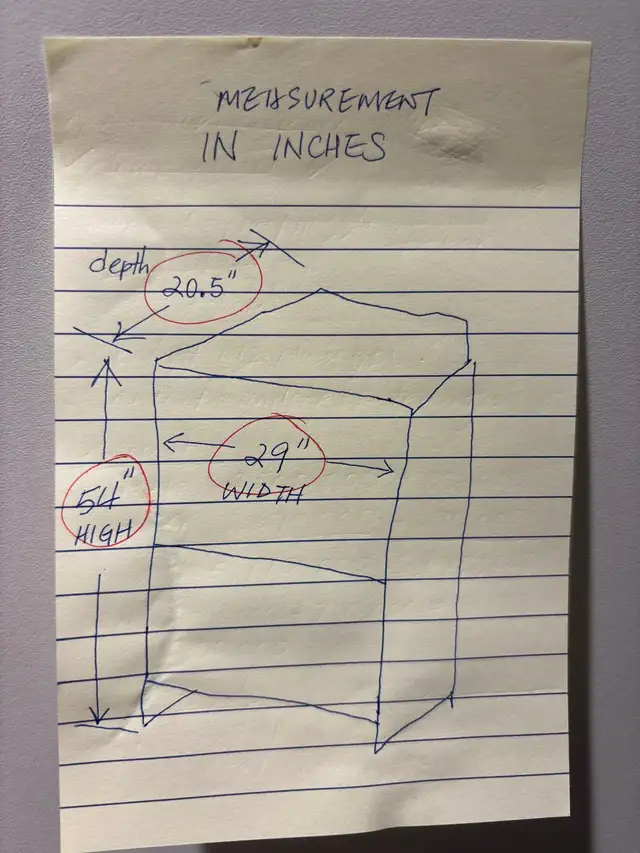 MEASUREMENT
IN INCHES
depth
20.5"
29"
WIDTH
54"
HIGH